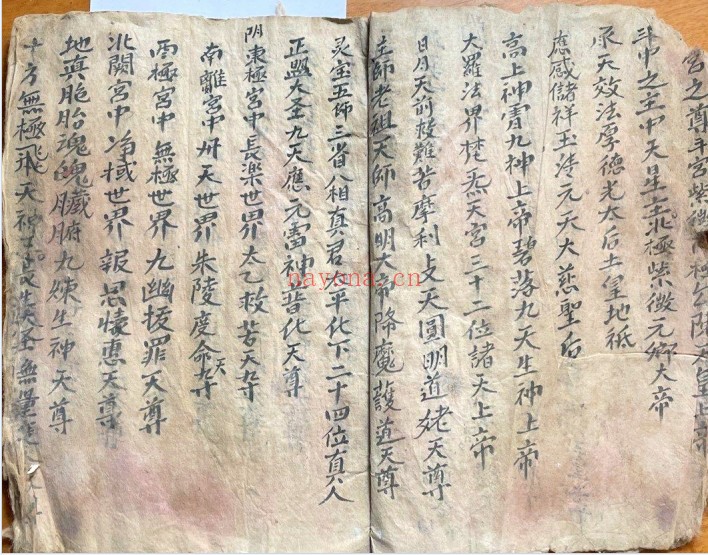 宮之尊斗宮紫微極勾陳天皇上帝
斗中之主中天星主北極紫微元卿大帝
承天效法厚德光大后土皇地祇
應感儲祥玉清元天大慈聖后
高上神霄九神上帝碧落九天生神上帝
大羅法界梵炁天宮三十二位諸天上帝
日月天前救難苦摩利支天圓明道姥天尊
主師老祖天師高明大帝降魔護道天尊
灵宝五师三省八相真君太平化下二十四位真人
正盟大圣九天應元雷神普化天尊
東極宮中長楽世界太乙救苦天尊
南離宮中卅天世界朱陵度命天尊
西極宮中無極世界九幽拔罪天尊
北闕宮中净棫世界報恩懷惠天尊
地真胞胎魂魄臟腑九煉生神天尊
十方無極飛天神王長生大圣無量
nayona.cn